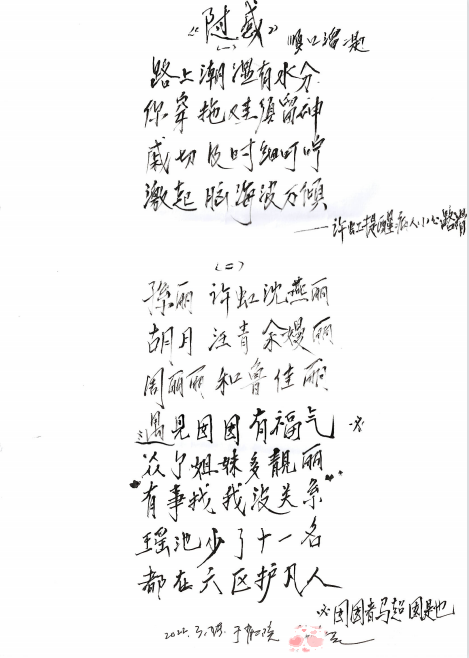 《随感》
(一) 顺口溜是
路上潮湿有水分
你穿拖鞋须留神
感切及时细叮咛
激起脑海波万倾
——许虹提醒病人小心路滑
(二)
孙丽 许虹沈燕丽
胡月 汪青 余嫚丽
周丽丽 和鲁佳丽
遇见囡囡有福气 ※
众多姐妹多靓丽
"有事找我没关系"
瑶池少了十一名
都在六区护凡人
※囡囡者马超囡是也
2022.3.